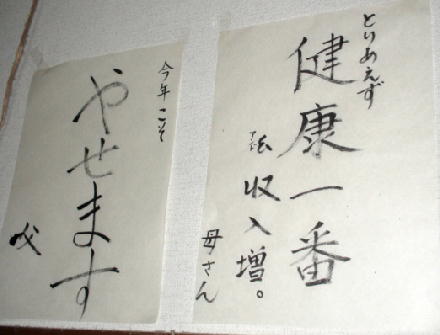 とりあえず
健康一番
収入増。
母さん
今年こそ
やせます